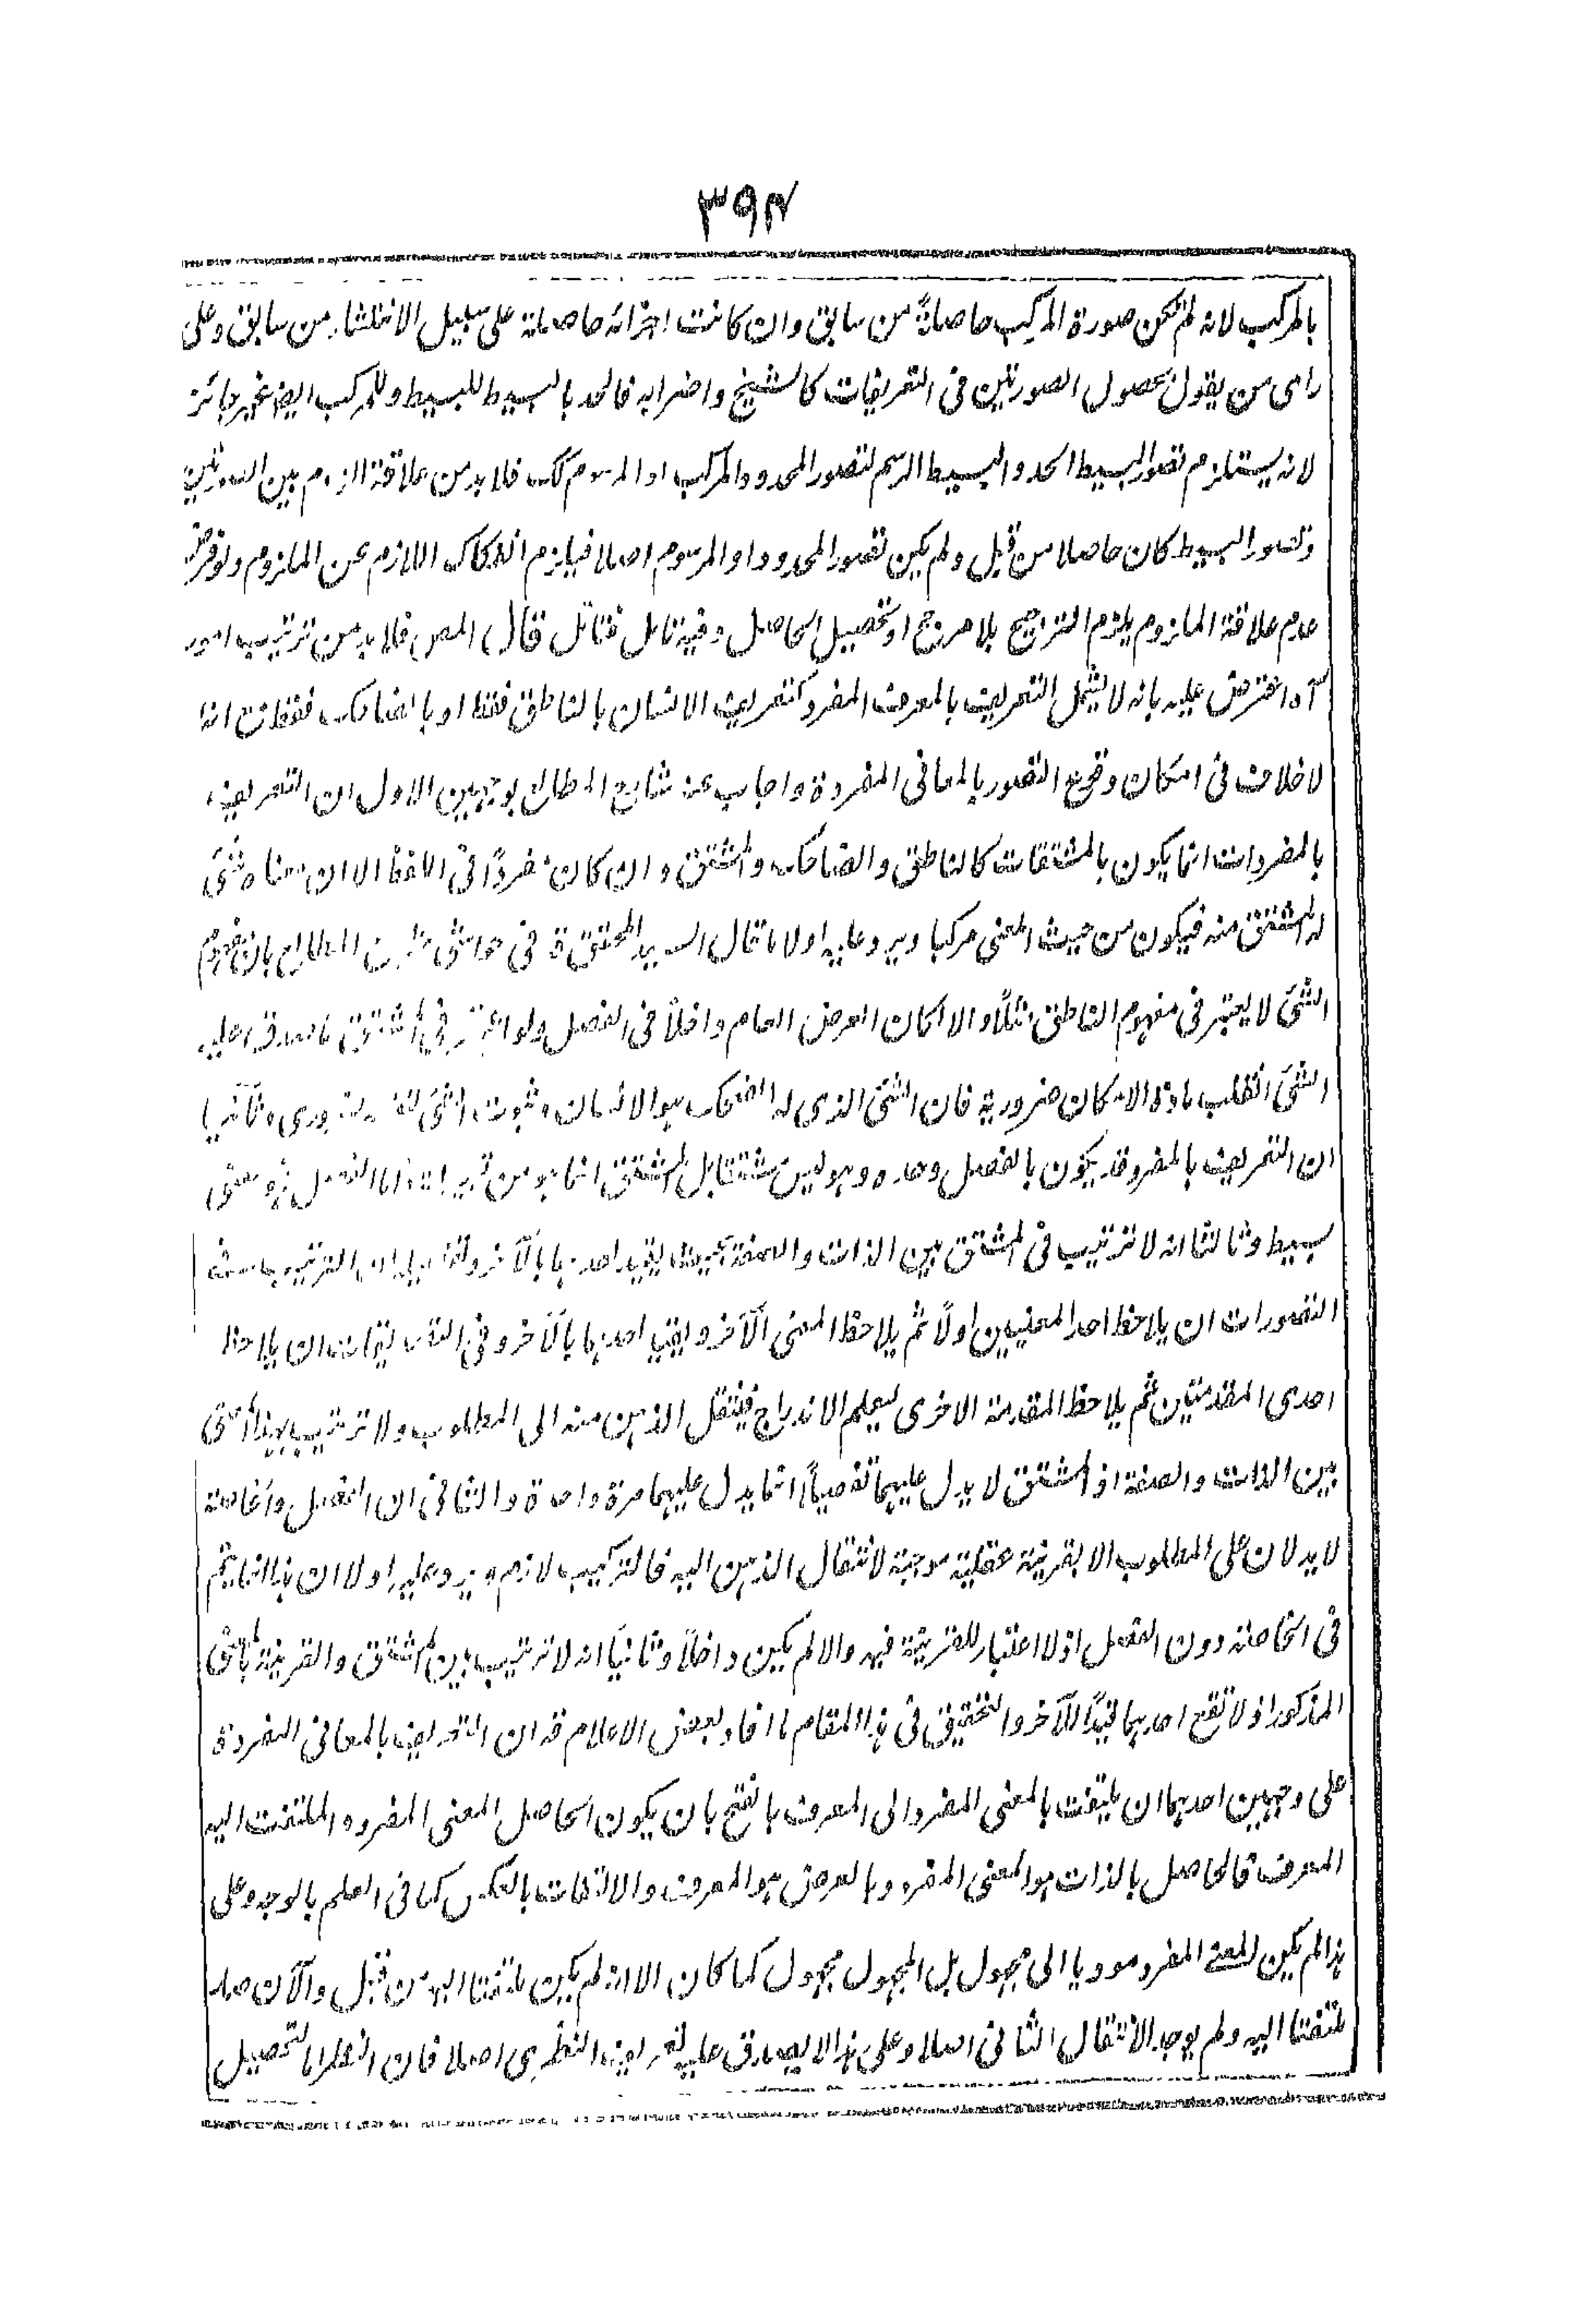 ٣٩٢
بالمركب لانه لم تكن صورة المركب حاصلةً من سابق وان كانت اجزائه حاصلة على سبيل الانتشار من سابق وعلى
راى من يقول بحصول الصورتين فى التعريفات كالشيخ واضرابه فالحد بالبسيط للبسيط وللمركب ايضا غير جائز
لانه يستلزم تصور البسيط الحد والبسيط الرسم لتصور المحدود المركب او المرسوم كك فلا بد من علاقة اللزوم بين التصورتين
وتصور البسيط كان حاصلا من قبل ولم يكن تصور المحدود او المرسوم اصلا فيلزم انفكاك اللازم عن الملزوم ولو فرض
عدم علاقة الملزوم يلزم الترجيح بلا مرجح او تحصيل الحاصل وفيه تامل فتامل قال المص فلا بد من ترتيب امور
آه اعترض عليه بانه لا يشمل التعريف بالمعرف المفرد كتعريف الانسان بالناطق فقط او بالضاحك فقط انه
لا خلاف فى امكان وقوع التصور بالمعانى المفردة واجاب عنه شارح المطالع بوجهين الاول ان التعريف
بالمفردات انما يكون بالمشتقات كالناطق والضاحك والمشتق وان كان مفرداً فى اللفظ الا ان معناه شئ
له المشتق منه فيكون من حيث المعنى مركبا ويرد عليه اولا ما قال السيد المحقق قه فى حواشى شرح المطالع بان مفهوم
الشئ لا يعتبر فى مفهوم الناطق مثلاً والا لكان العرض العام داخلاً فى الفصل ولو اعتبر فى المشتق ما صدق عليه
الشئ انقلب مادة الامكان ضرورية فان الشئ الذى له الضحك هو الانسان وثبوت الشئ لنفسه ضرورى وثانيا
ان التعريف بالمفرد قد يكون بالفصل وحده وهو ليس بمشتق بل المشتق انما هو من اما الفصل فهو معنى
بسيط وثالثا انه لا ترتيب فى المشتق بين الذات والصفة بحيث يقيد احدهما بالآخر الترتيب
التصورات ان يلاحظ احد المعنيين اولاً ثم يلاحظ المعنى الآخر ويقيد احدهما بالآخر وفى التصديقات ان يلاحظ
احدى المقدمتين ثم يلاحظ المقدمة الاخرى ليعلم الاندراج فينتقل الذهن منه الى المطلوب ولا ترتيب بهذا المعنى
بين الذات والصفة اذ المشتق لا يدل عليهما تفصيلاً انما يدل عليهما مرة واحدة والثانى ان الفصل والخاصة
لا يدلان على المطلوب الا بقرينة عقلية موجبة لانتقال الذهن اليه فالتركيب لازم ويرد عليه اولا ان هذا انما يتم
فى الخاصة دون الفصل اذ لا اعتبار للقرينة فيه والا لم يكن داخلاً وثانياً انه لا ترتيب بين المشتق والقرينة بالمعنى
المذكور اذ لا تقع احديهما قيداً للآخر والتحقيق فى هذا المقام ما افاد بعض الاعلام قه ان التعريف بالمعانى المفردة
على وجهين احدهما ان يلتفت بالمعنى المفرد الى المعرف بالفتح بان يكون الحاصل المعنى المفرد والملتفت اليه
المعرف فالحاصل بالذات هو المعنى المفرد وبالعرض هو المعرف والالتفات بالعكس كما فى العلم بالوجه وعلى
هذا لم يكن المعنے المفرد موديا الى مجهول بل المجهول مجهول كما كان الا انه لم يكن ملتفتا اليه من قبل والآن صار
ملتفتا اليه ولم يوجد الانتقال الثانى اصلا وعلى هذا لا يصدق عليه تعريف النظرى اصلا فان النظر لتحصيل